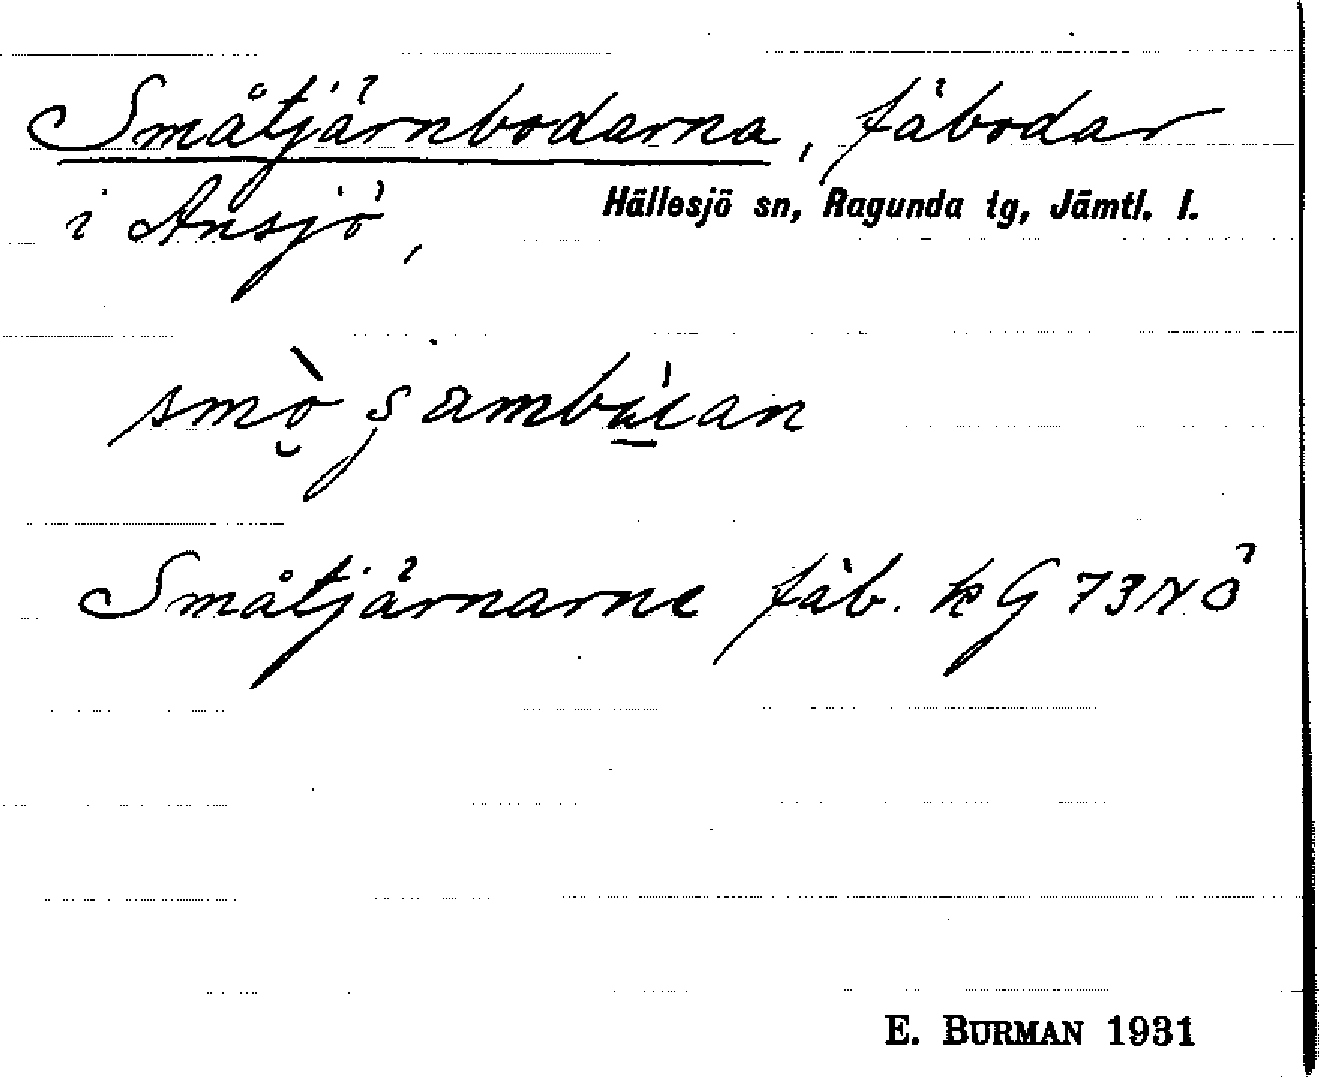 Småtjärnbodarna, fäbodar
i Ansjö, Hällesjö sn, Ragunda tg, Jämtl. l.
Småtjärnarne fäb. kG 73NÖ
E. BURMAN 1931